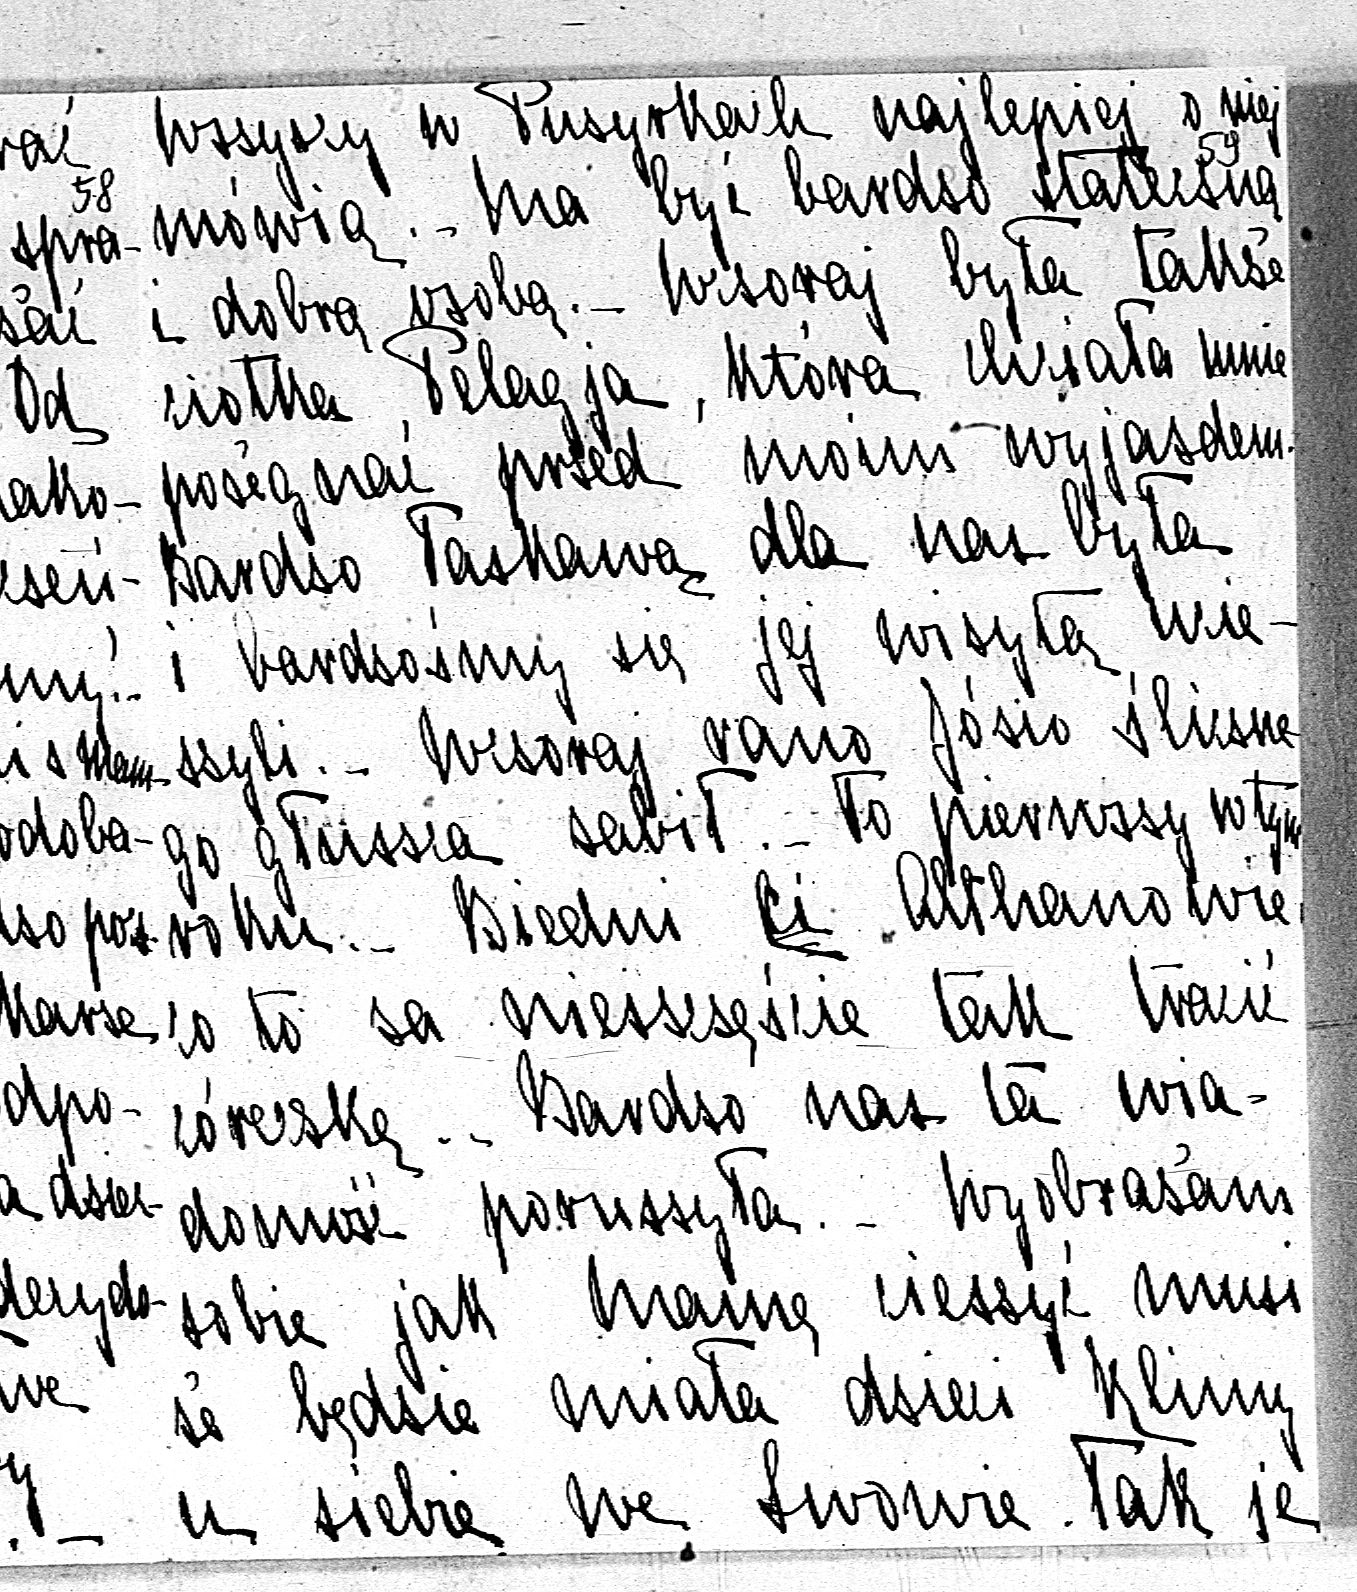 58
59
wszyscy w Pusyrkach najlepiej o niej
mówią.- Ma być bardzo stateczną
i dobrą osobą.- Wczoraj była także
ciotka Pelagja, która chciała mnie
pożegnać przed moim wyjazdem.
Bardzo łaskawą dla nas była
i bardzośmy się jej wizytą cie-
szyli.- Wczoraj rano Józio śliczne-
go głuszca zabił.- To pierwszy w tym
roku.- Biedni Ci Althanowie
co to za nieszczęście tak tracić
córeczkę.- Bardzo nas ta wia-
domość poruszyła.- Wyobrażam
sobie jak Mamę cieszyć musi
że będzie miała dzieci Klimy
u siebie we Lwowie. Tak je
spra-
Od
odoba-
dpo-